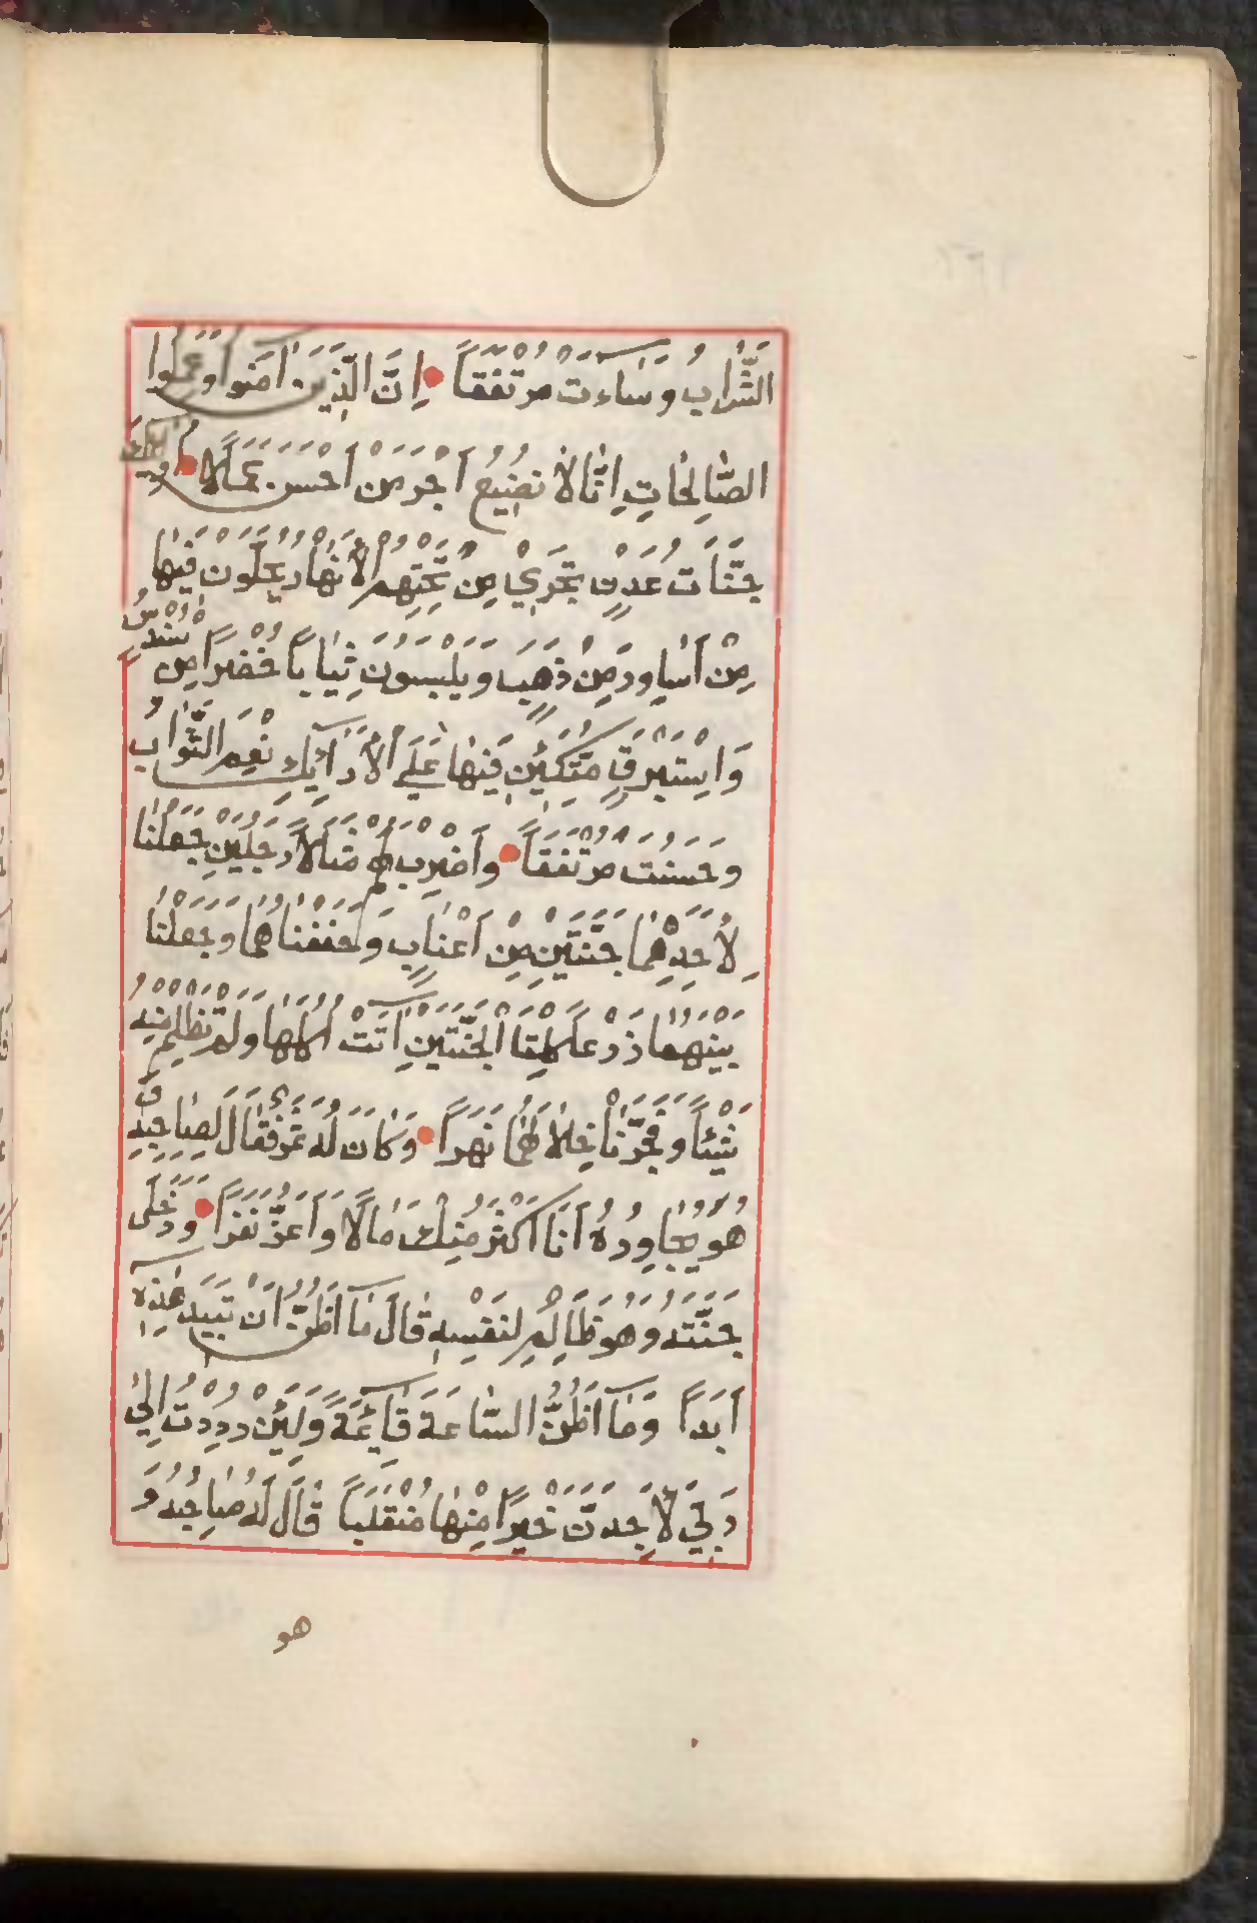 الشَّرَابُ وَسَاءَتْ مُرْتَفَقاً اِنَّ الَّذِينَ اٰمَنُوا وَعَمِلُوا
الصَّالِحَاتِ اِنَّا لَا نُضِيعُ اَجْرَ مَنْ اَحْسَنَ عَمَلًا اُولٰئِكَ
جَنَّاتُ عَدْنٍ تَجْرِي مِنْ تَحْتِهِمُ الْاَنْهَارُ يُحَلَّوْنَ فِيهَا
مِنْ اَسَاوِرَ مِنْ ذَهَبٍ وَيَلْبَسُونَ ثِيَاباً خُضْراً مِنْ سُنْدُسٍ
وَاِسْتَبْرَقٍ مُتَّكِئِينَ فِيهَا عَلَى الْاَرَائِكِ نِعْمَ الثَّوَابُ
وَحَسُنَتْ مُرْتَفَقاً وَاضْرِبْ لَهُمْ مَثَلًا رَجُلَيْنِ جَعَلْنَا
لِاَحَدِهِمَا جَنَّتَيْنِ مِنْ اَعْنَابٍ وَحَفَفْنَاهُمَا وَجَعَلْنَا
بَيْنَهُمَا زَرْعاً كِلْتَا الْجَنَّتَيْنِ اٰتَتْ اُكُلَهَا وَلَمْ تَظْلِمْ مِنْهُ
شَيْئاً وَفَجَّرْنَا خِلَالَهُمَا نَهَراً وَكَانَ لَهُ ثَمَرٌ فَقَالَ لِصَاحِبِهِ وَ
هُوَ يُحَاوِرُهُ اَنَا اَكْثَرُ مِنْكَ مَالًا وَاَعَزُّ نَفَراً وَدَخَلَ
جَنَّتَهُ وَهُوَ ظَالِمٌ لِنَفْسِهِ قَالَ مَا اَظُنُّ اَنْ تَبِيدَ هٰذِهِ
اَبَداً وَمَا اَظُنُّ السَّاعَةَ قَائِمَةً وَلَئِنْ رُدِدْتُ اِلٰى
رَبِّي لَاَجِدَنَّ خَيْراً مِنْهَا مُنْقَلَباً قَالَ لَهُ صَاحِبُهُ وَ
هو